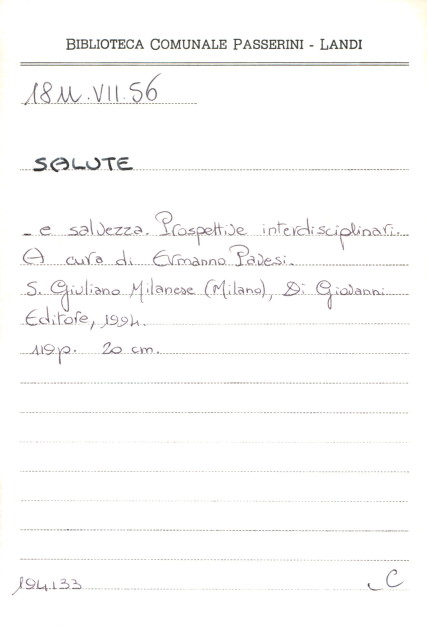 BIBLIOTECA COMUNALE PASSERINI - LANDI
18M.VII.56
SALUTE
- e salvezza. Prospettive interdisciplinari.
A cura di Ermanno Pavesi.
S. Giuliano Milanese (Milano), Di Giovanni
Editore, 1994.
119p. 20 cm.
194133
C